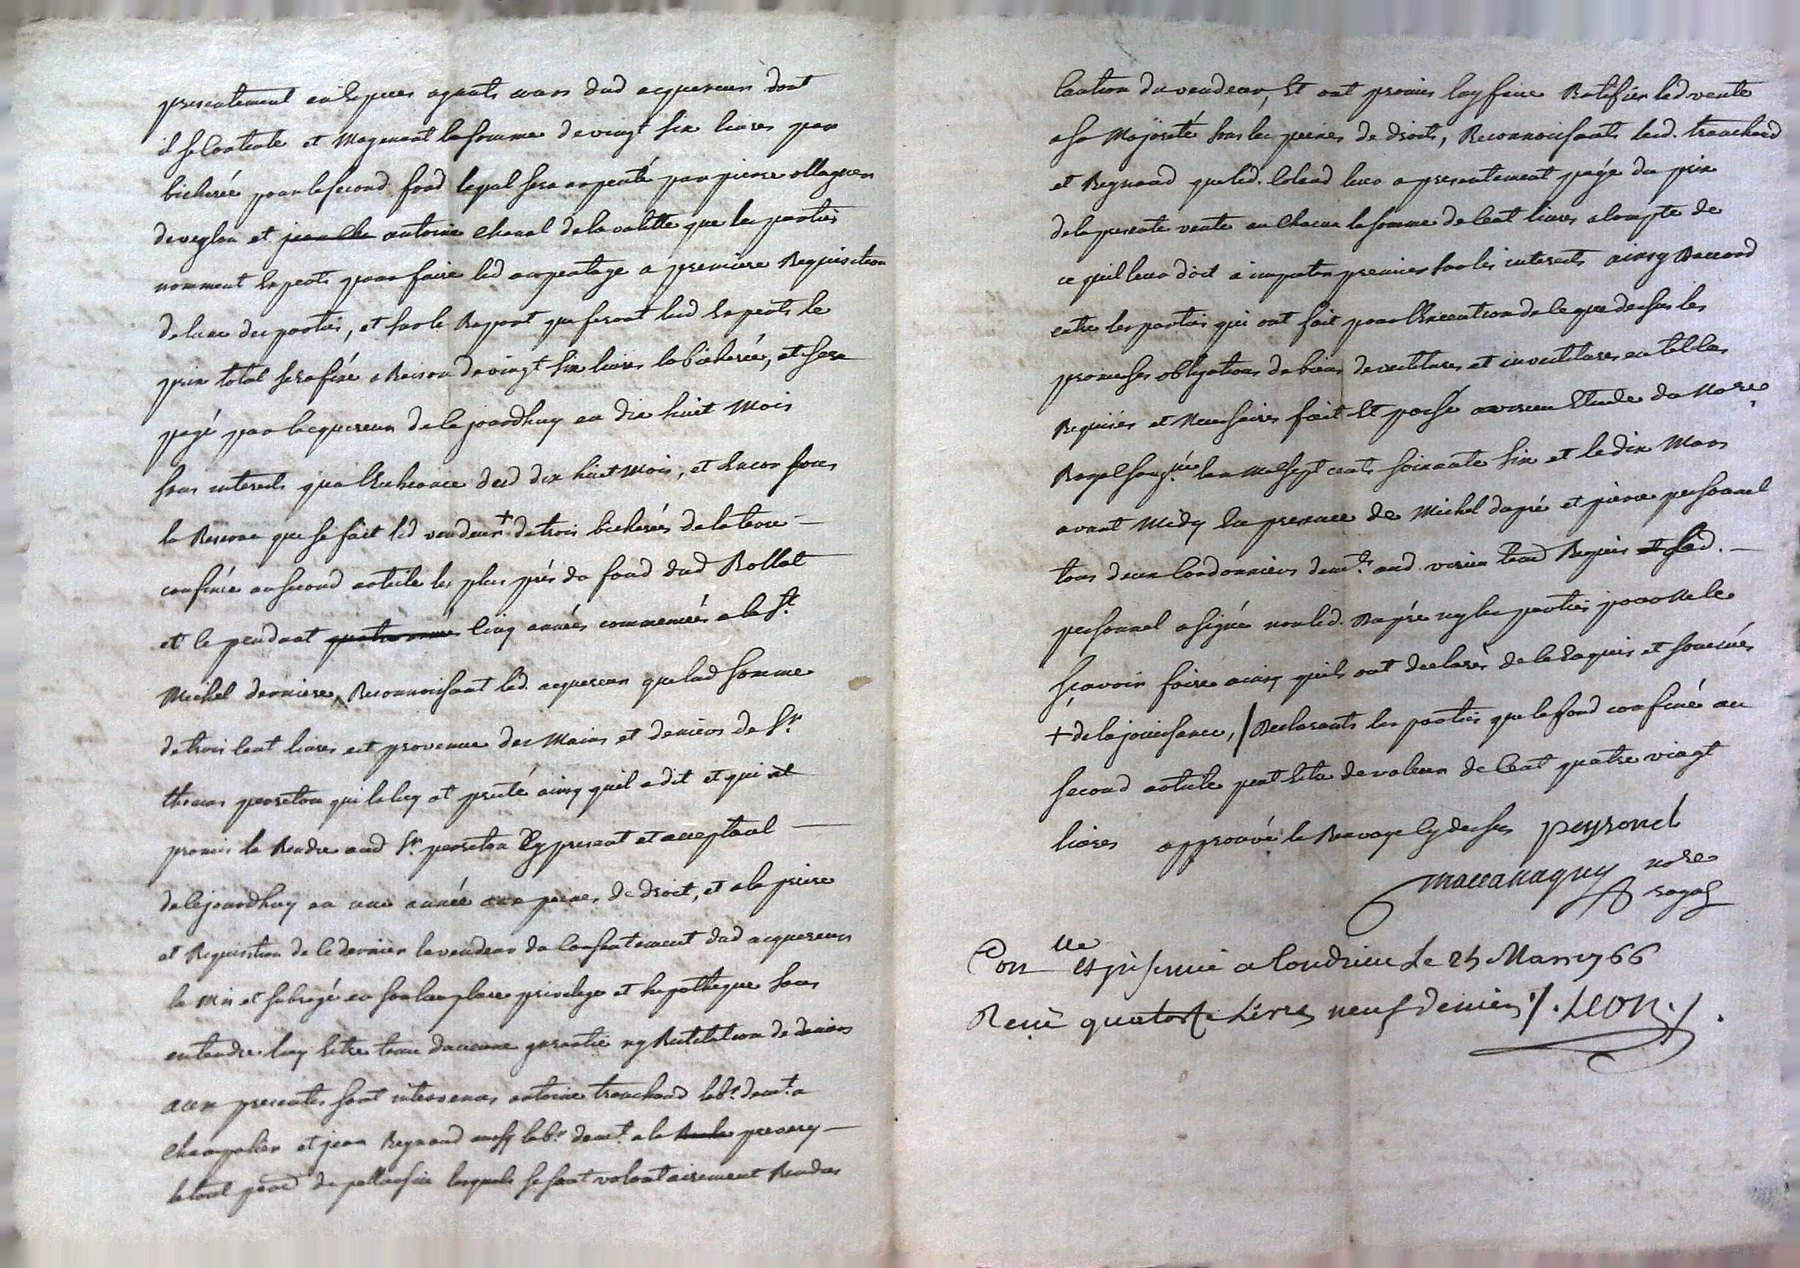 presentement en Especes ayants cours dud acquereur dont
il se Contente et Moyenant la somme de vingt six livres par
bicherée pour le second fond lequel sera arpenté par pierre ollagnier
de veglon et antoine Chenal de la valette que les parties
nomment Experts pour faire led arpentage a premiere Requisition
de lune des parties, et sur le Raport que feront lesd Experts le
prix total sera fixé a Raison de vingt six livres la bicherée, et sera
payé par lacquereur de ce jourdhuy en dix huit Mois
sans interests qua lEcheance desd dix huit Mois, et Encor sous
la Reserve que se fait led vendeur + de trois bicherées de la terre
confinée au second article les plus prés du fond dud Rollat
et ce pendant cinq années commencées a la St
Michel derniere, Reconnoissant led. acquereur que lad somme
de trois Cent livres est provenue des Mains et deniers de Sr
thomas peoreton qui la luy at preté ainsy quil a dit et qui at
promis la Rendre aud Sr peoreton Cy present et acceptant
de ce jourdhuy en une année aux peines de droit, et a la priere
et Requisition de ce dernier le vendeur du Consentement dud acquereur
la Mis et subrogé en son lieu place privilege et hypotheque sans
entendre luy Estre tenu daucune garantie ny Restitution de deniers
aux presentes sont intervenus antoine tranchand labr. demt. a
Champailler et jean Reynaud aussy labr demt. a la prevery
le tout psse de pellussin lesquels se sont volontairement Rendus
Caution du vendeur, Et ont promis luy faire Ratifier lad vente
a sa Majorité sous les peines de droits, Reconnoissants lesd. tranchand
et Reynaud que led. Coland leur a presentement payé du prix
de la presente vente au Chacun la somme de Cent livres a Compte de
ce quil leur doit a imputer premier sur les interests ainsy Daccord
entre les parties qui ont fait pour lExecution de ce que dessus les
promesses obligations de biens devestitures et investitures en tel cas
Requises et Necessaires fait Et passé a verieu Etude du Nore
Royal sousgné lan Mil sept cents soixante six et le dix Mars
avant Midy En presence de Michel dupré et pierre personnel
tous deux Cordonniers demts aud verieu tem Requis led.
personnel a signé non led. dupré ny les parties pour ne le
sçavoir faire ainsy quils ont declarés de ce Enquis et sommés
+ de la jouissance, / Declarants les parties que le fond confiné au
second article peut Estre de valeur de Cent quatre vingt
livres approuvé le Renvoye Cy dessus peysonel
nore
royal
Conlle et insinué a Condrieu Le 25 Mars 1766
Reçu quatorze Livres neuf deniers /. Leon ./.